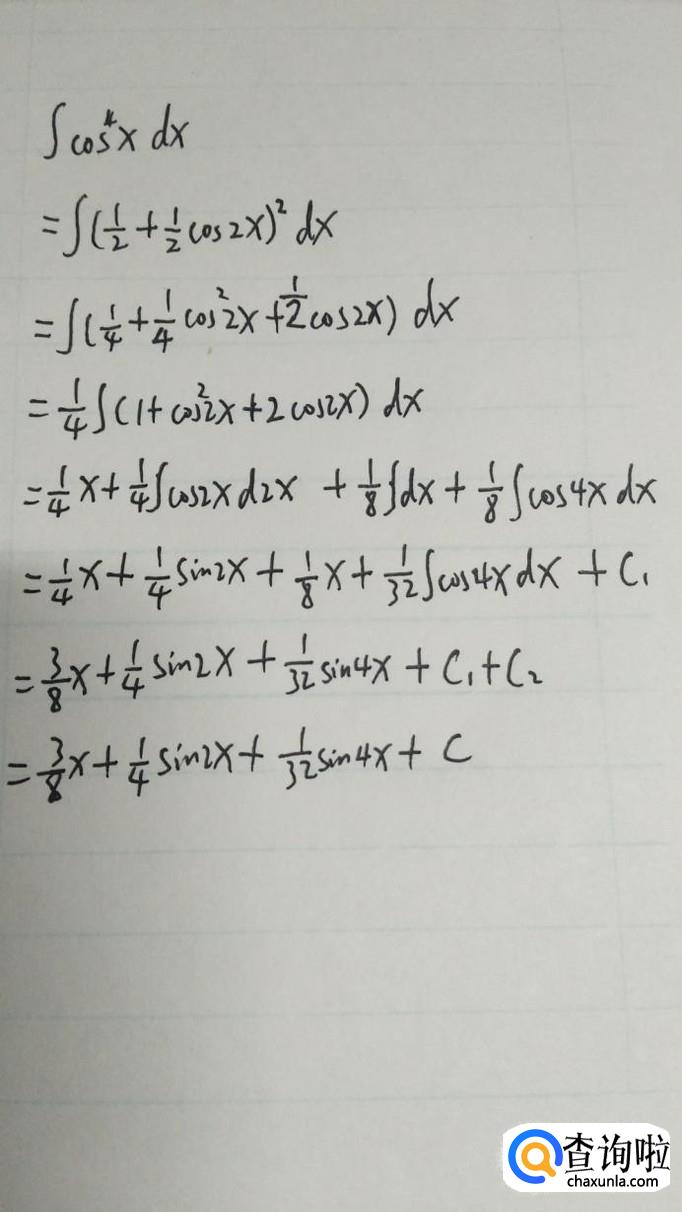 ∫cos⁴x dx
=∫(1/2+1/2cos2x)²dx
=∫(1/4+1/4cos²2x+1/2cos2x)dx
=1/4∫(1+cos²2x+2cos2x)dx
=1/4x+1/4∫cos2xd2x+1/8∫dx+1/8∫cos4xdx
=1/4x+1/4sin2x+1/8x+1/32∫cos4xdx+C₁
=3/8x+1/4sin2x+1/32sin4x+C₁+C₂
=3/8x+1/4sin2x+1/32sin4x+C
查询啦
chaxunla.com